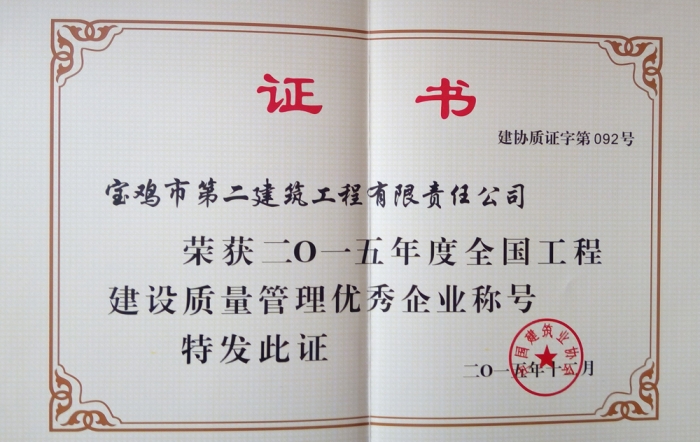 证书
建协质证字第092号
宝鸡市第二建筑工程有限责任公司
荣获二〇一五年度全国工程
建设质量管理优秀企业称号
特发此证
中国建筑业协会
二〇一五年十二月